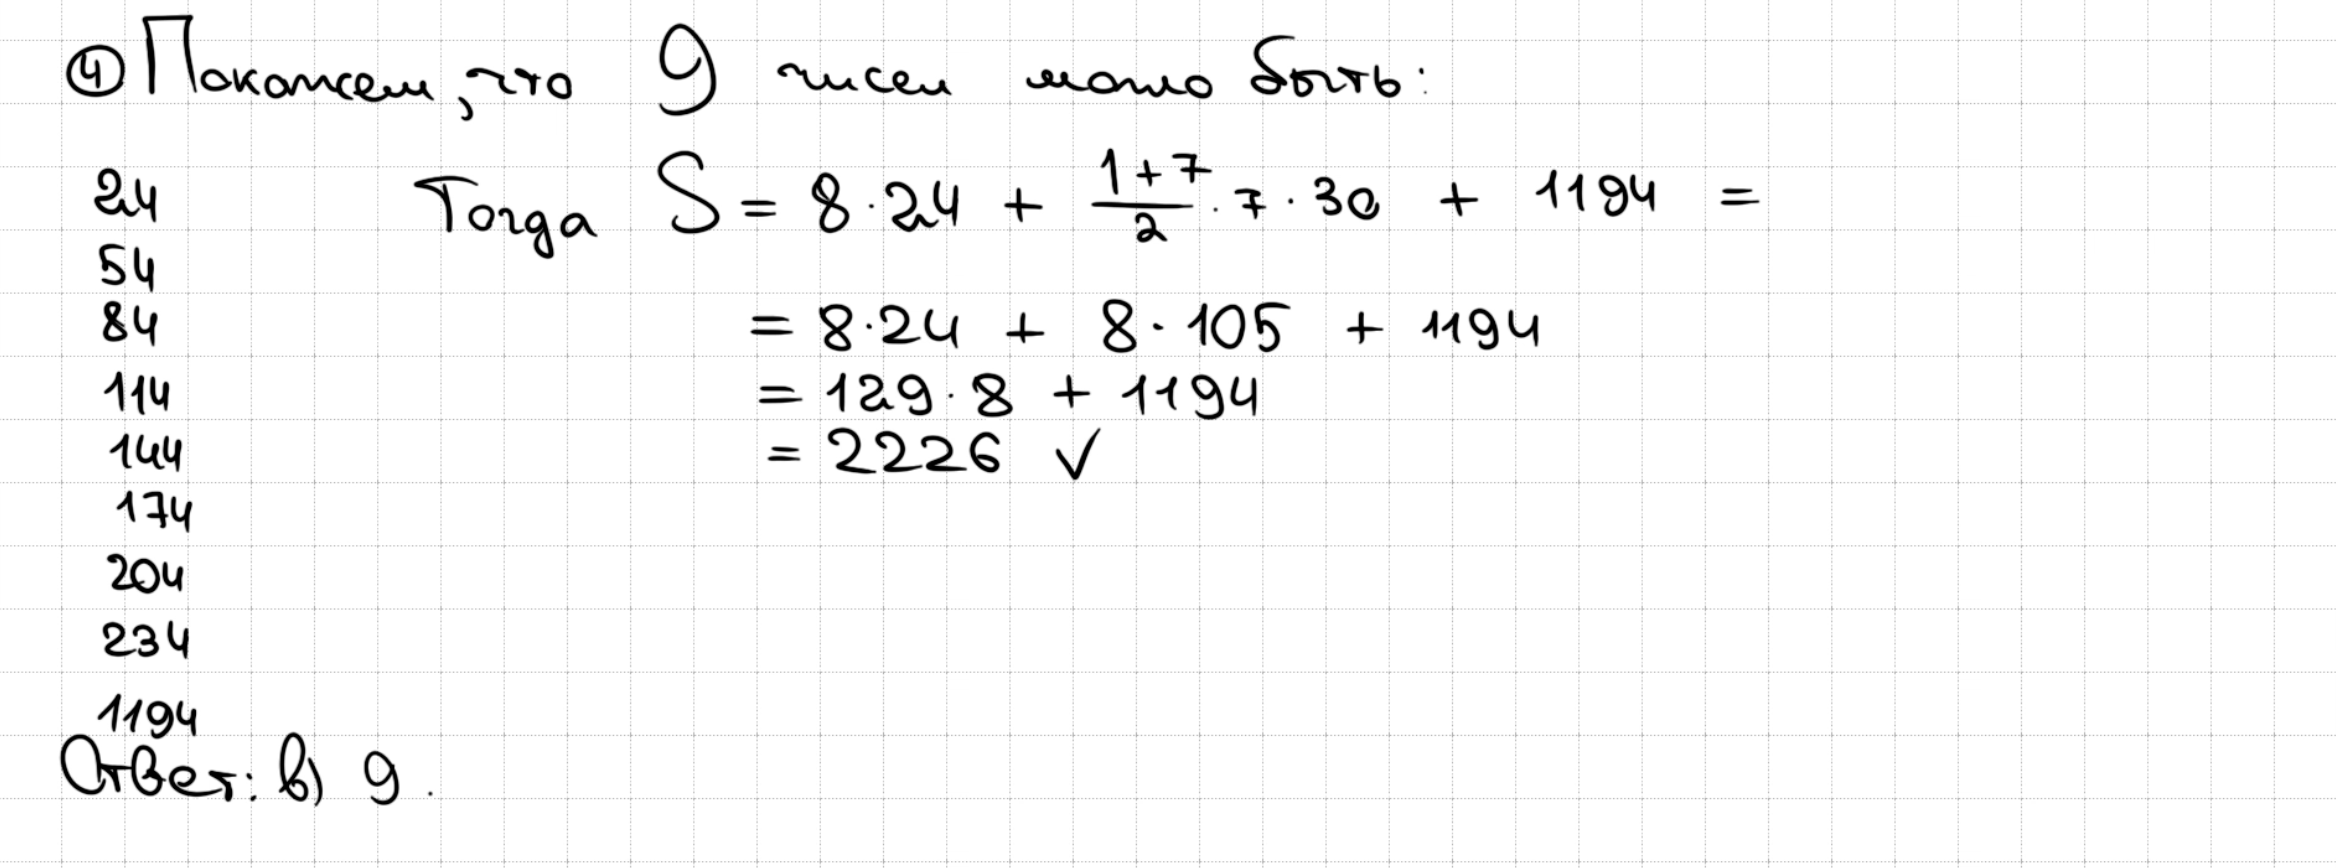 ④ Покажем, что 9 чисел могло быть:
24 Тогда S = 8·24 + (1+7)/2 · 7 · 30 + 1194 =
54
84 = 8·24 + 8·105 + 1194
114 = 129·8 + 1194
144 = 2226 ✓
174
204
234
1194
Ответ: в) 9.